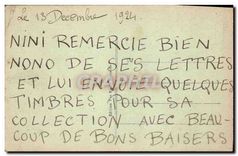 Le 13 Decembre 1924
NINI REMERCIE BIEN
NONO DE SES LETTRES
ET LUI ENVOIE QUELQUES
TIMBRES POUR SA
COLLECTION AVEC BEAU-
COUP DE BONS BAISERS